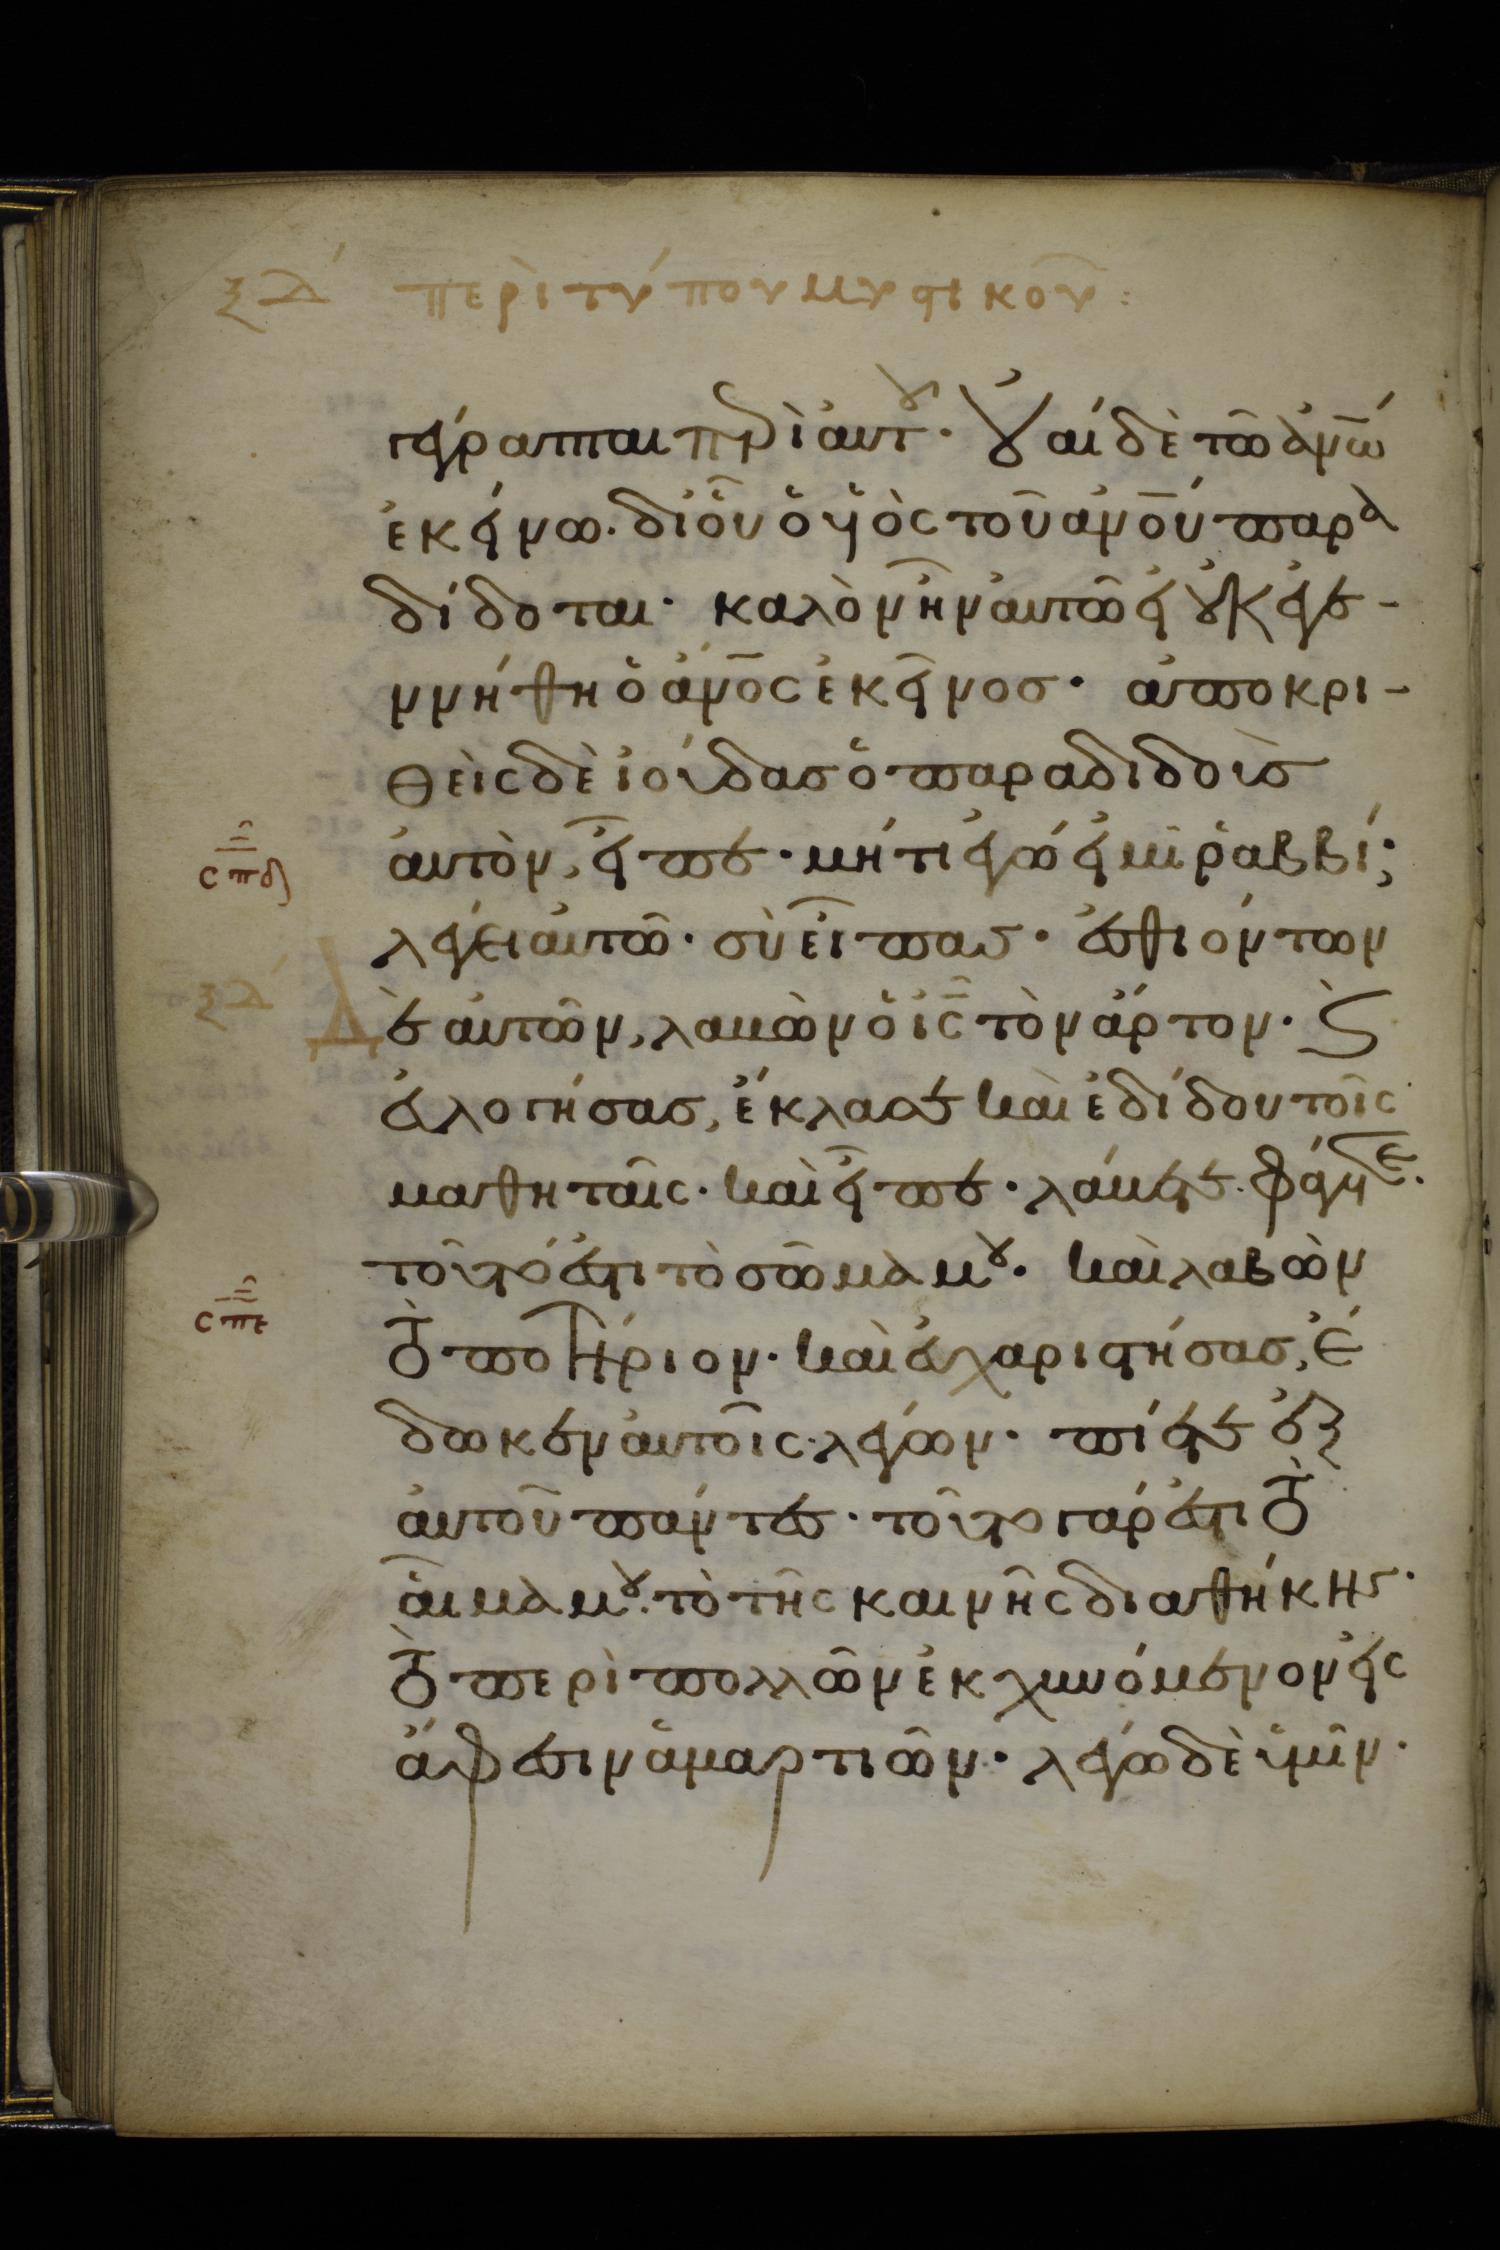 ξδ́ περὶ τύπου μυστικοῦ:
γέγραπται περὶ αὐτοῦ· οὐαὶ δὲ τῶ ἀν̅ω̅
ἐκείνω· δι οὗ ὁ υἱὸς τοῦ ἀν̅ο̅υ̅ παρα
δίδοται· καλὸν ἦν αὐτῶ εἰ οὐκ ἐγε-
ννήθη ὁ ἀν̅ο̅ς̅ ἐκεῖνος· ἀποκρι-
θεὶς δὲ ἰούδας ὁ παραδιδοὺς
σπδ αὐτὸν, εἶπε· μήτι ἐγώ εἰμι ῥαββί;
λέγει αὐτῶ· σὺ εἶπας· ἐσθιόντων
ξδ́ Δὲ αὐτῶν, λαβὼν ὁ ι̅ς̅ τὸν ἄρτον· καὶ
εὐλογήσας, ἔκλασε καὶ ἐδίδου τοῖς
μαθηταῖς· καὶ εἶπε· λάβετε· φάγετε·
τοῦτό ἐστι τὸ σῶμα μου· καὶ λαβὼν
σπε τὸ ποτήριον· καὶ εὐχαριστήσας, ἔ
δωκεν αὐτοῖς λέγων· πίετε ἐξ
αὐτοῦ πάντες· τοῦτο γάρ ἐστι τὸ
αἷμα μου· τὸ τῆς καινῆς διαθήκης·
τὸ περὶ πολλῶν ἐκχυνόμενον εἰς
ἄφεσιν ἁμαρτιῶν· λέγω δὲ ὑμῖν·